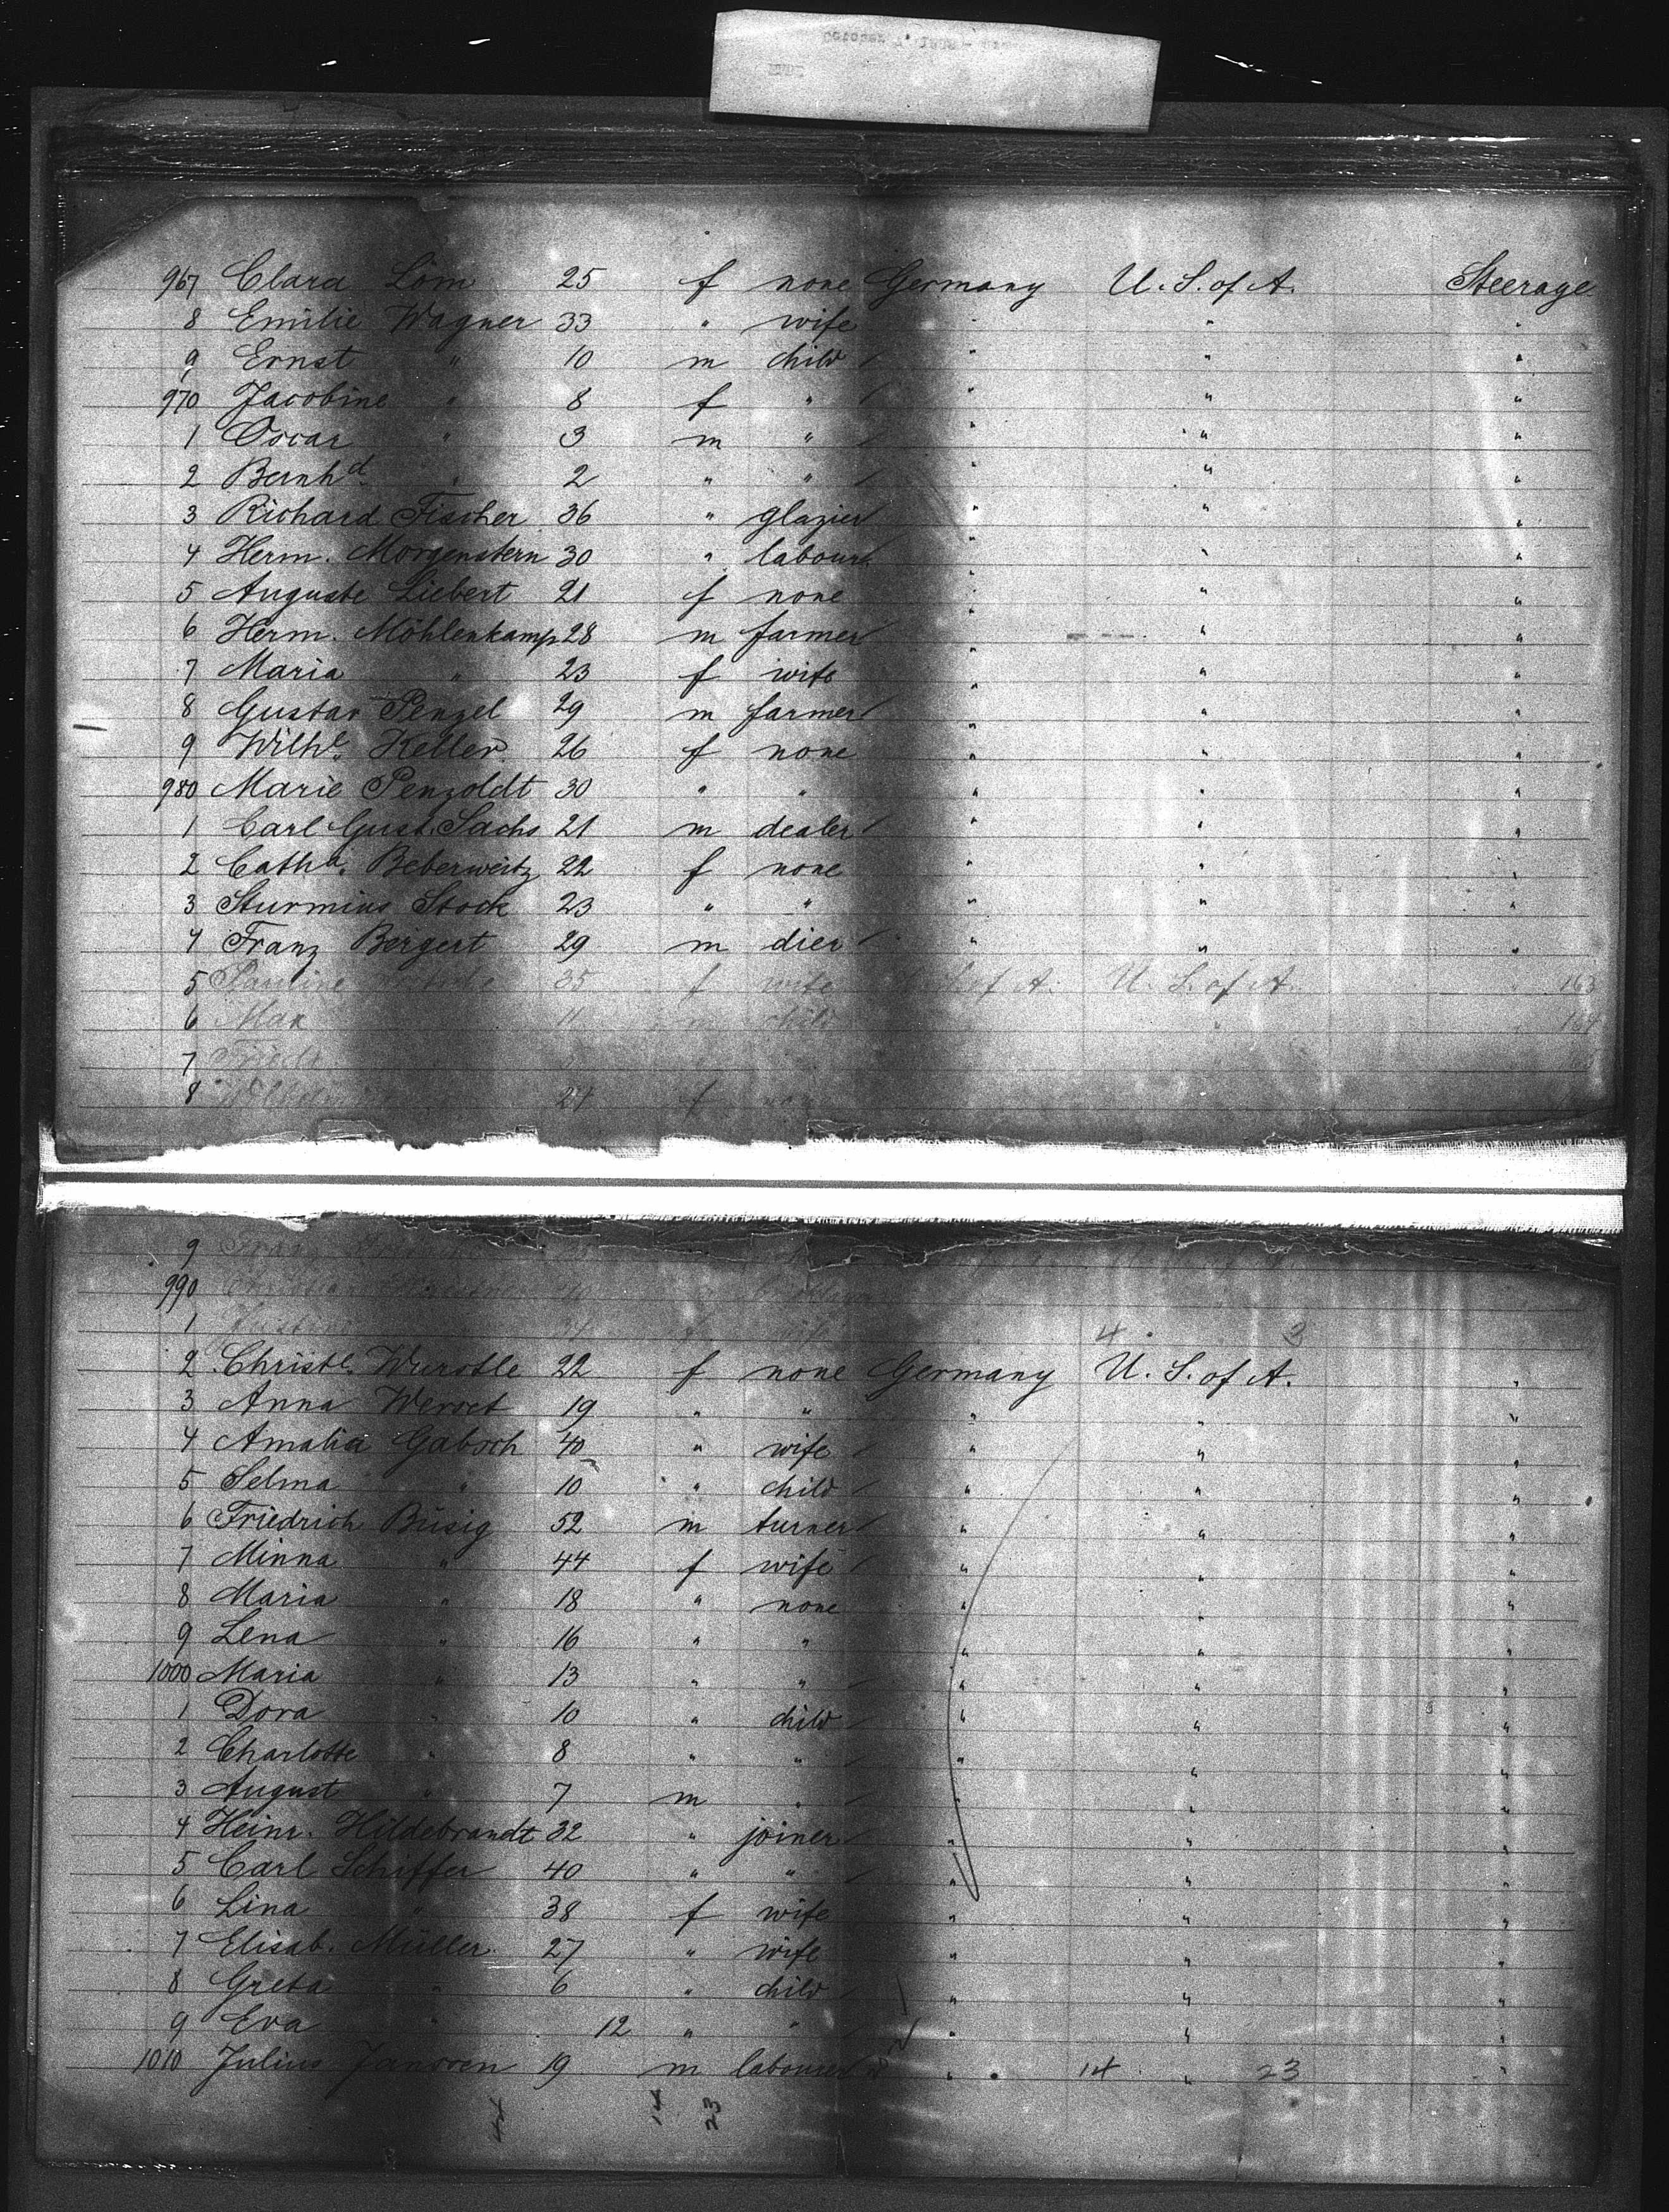 967 Clara Löm 25 f none Germany U.S. of A. Steerage
8 Emilie Wagner 33 " wife " " "
9 Ernst " 10 m child " " "
970 Jacobine " 8 f " " " "
1 Oscar " 3 m " " " "
2 Bernhd. " 2 " " " " "
3 Richard Fischer 36 " glazier " " "
4 Herm. Morgenstern 30 " labour. " " "
5 Auguste Liebert 21 f none " " "
6 Herm. Möhlenkamp 28 m farmer " " "
7 Maria " 23 f wife " " "
8 Gustav Penzel 29 m farmer " " "
9 Wilhe. Keller 26 f none " " "
980 Marie Penzoldt 30 " " " " "
1 Carl Gust. Sachs 21 m dealer " " "
2 Catha. Beberweitz 22 f none " " "
3 Sturmius Stock 23 " " " " "
4 Franz Bergert 29 m dier " " "
5 Pauline 35 f wife of A. U.S. of A. 163
6 Max 11 m child " 164
7 Frieda
8 24 f
9
990
1 wife 4 3
2 Christe. Wurstle 22 f none Germany U.S. of A. "
3 Anna 19 " " " " "
4 Amalia Gabsch 40 " wife " " "
5 Selma " 10 " child " " "
6 Friedrich Büsig 52 m turner " " "
7 Minna " 44 f wife " " "
8 Maria " 18 " none " " "
9 Lena " 16 " " " " "
1000 Maria " 13 " " " " "
1 Dora " 10 " child " " "
2 Charlotte " 8 " " " " "
3 August " 7 m " " " "
4 Heinr. Hildebrandt 32 " joiner " " "
5 Carl Schiffer 40 " " " " "
6 Lina " 38 f wife " " "
7 Elisab. Müller 27 " wife " " "
8 Greta " 6 " child " " "
9 Eva " 12 " " " " "
1010 Julius Janssen 19 m labourer " 14 " 23 "
44 14 23